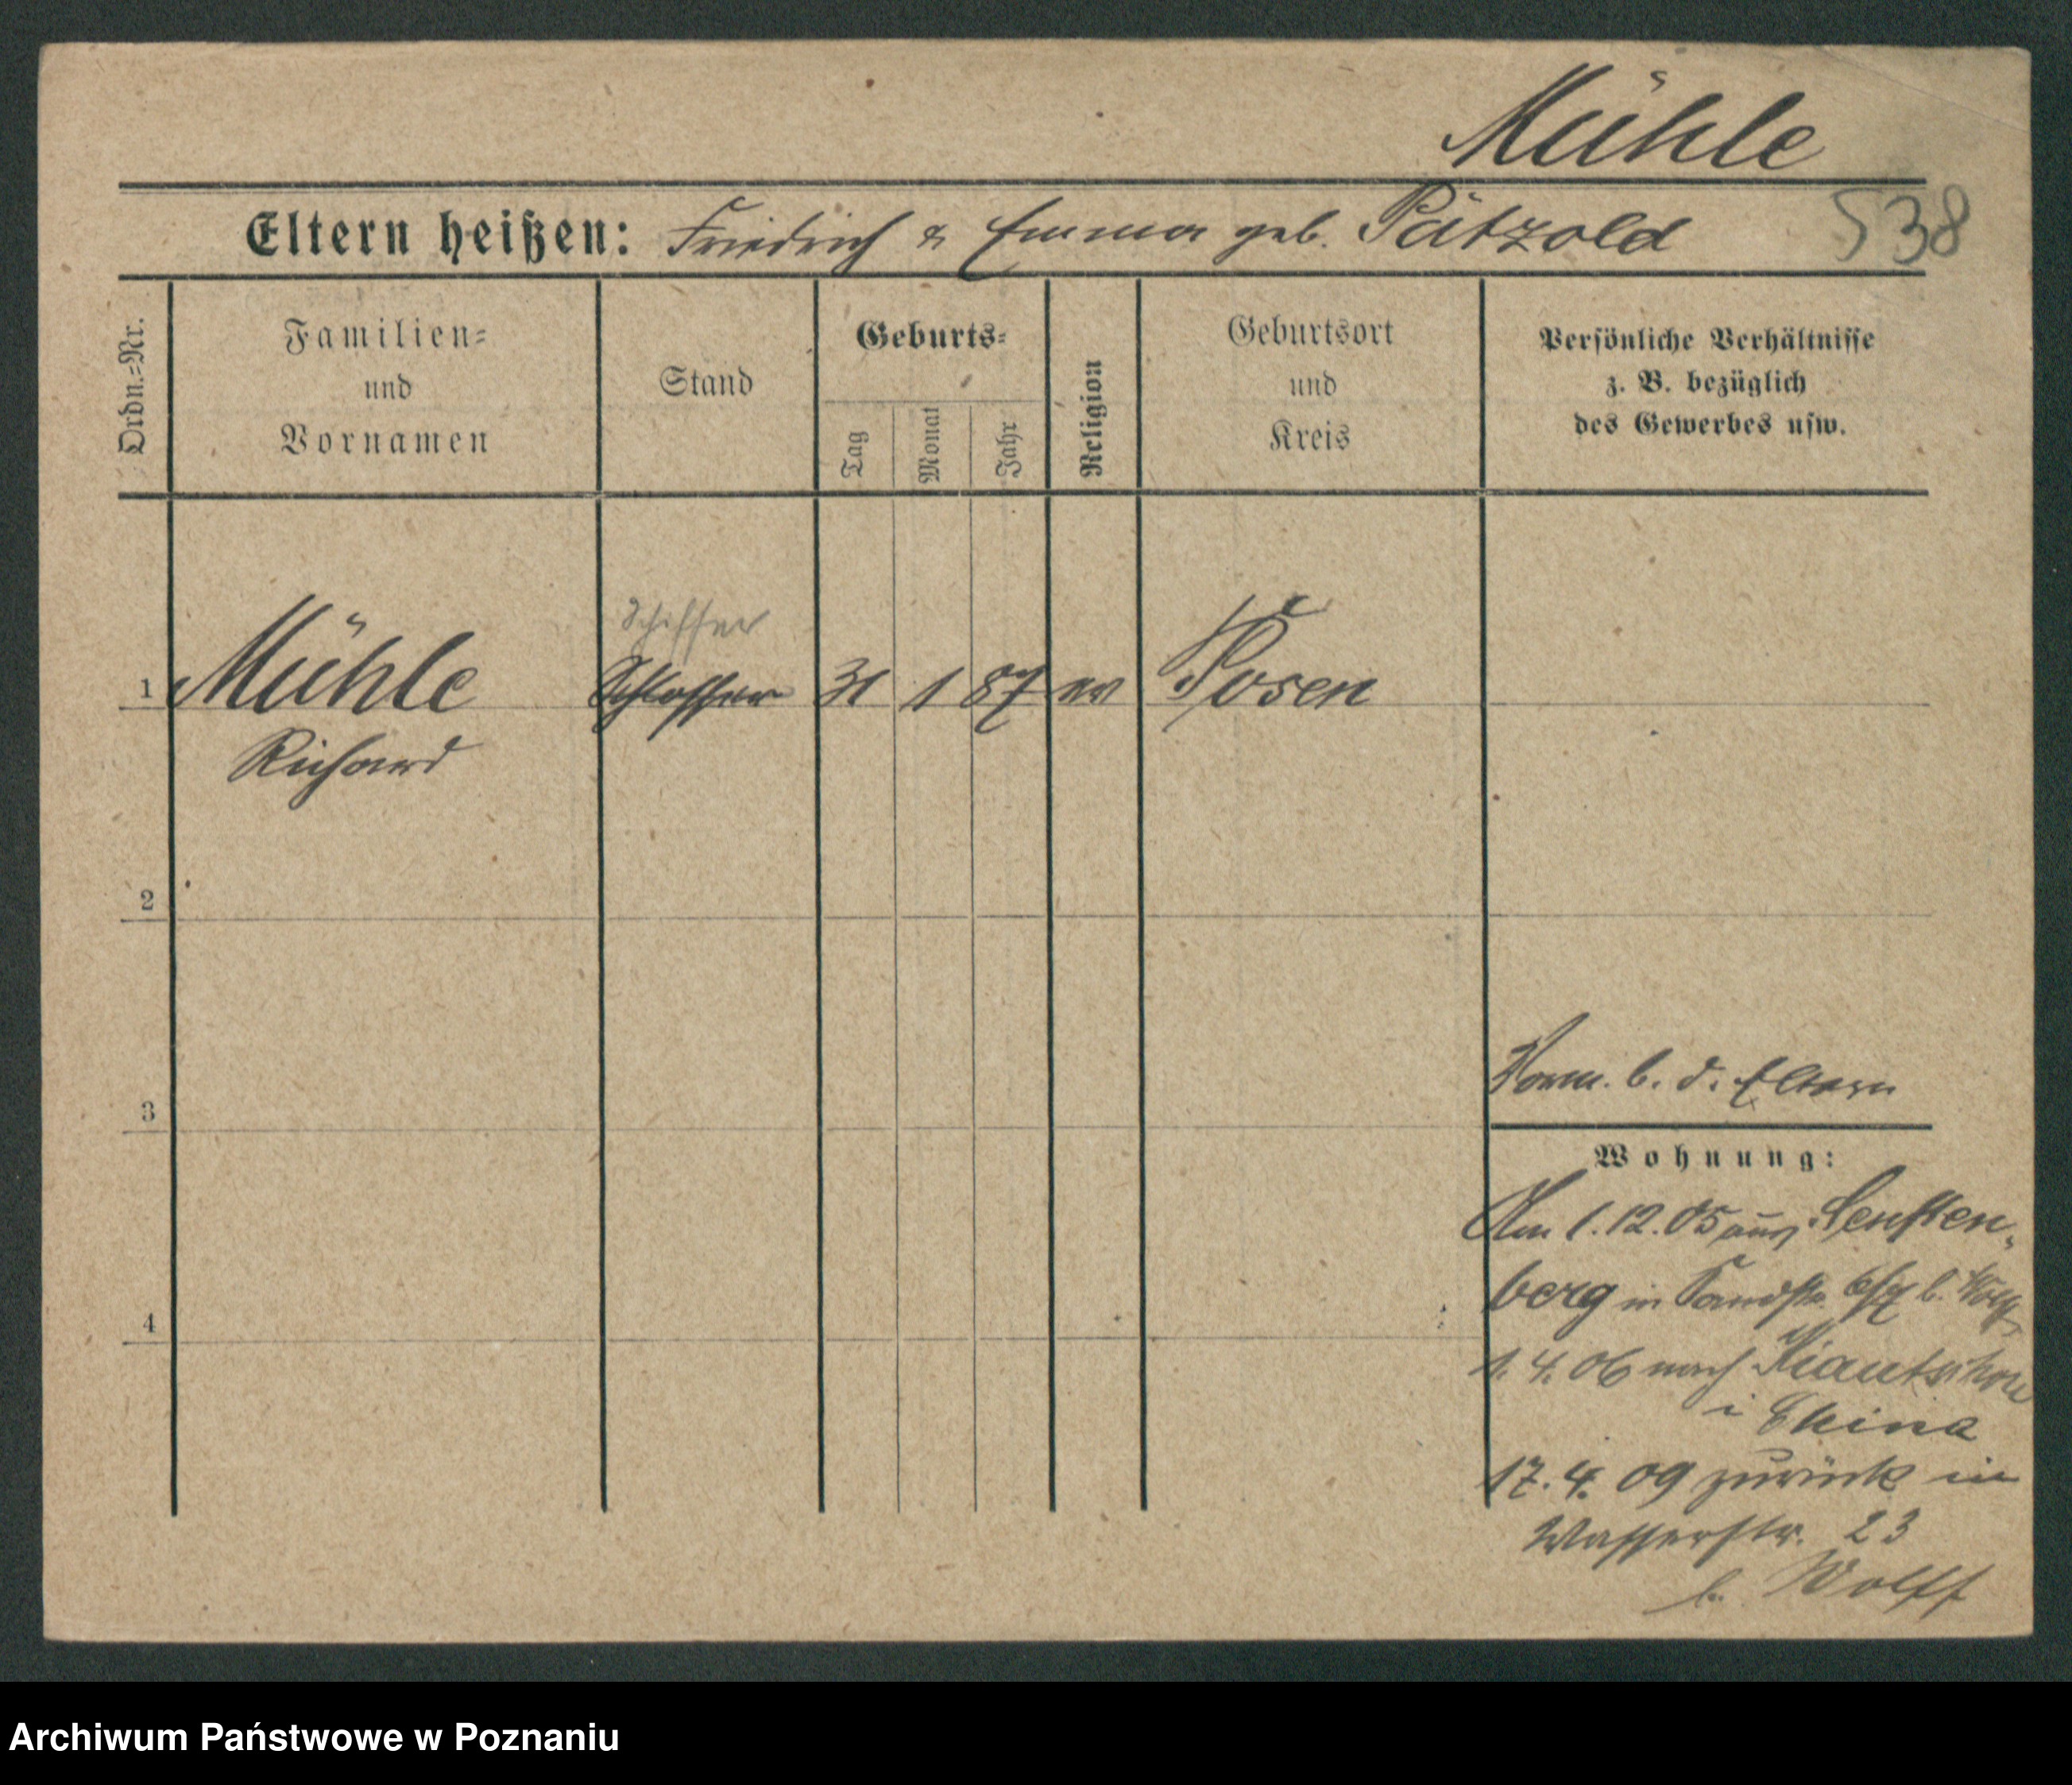 Mühle
Eltern heißen: Friedrich & Emma geb. Pätzold 538
Ordn.-Nr.
Familien-
und
Vornamen
Stand
Geburts-
Tag
Monat
Jahr
Religion
Geburtsort
und
Kreis
Persönliche Verhältnisse
z. B. bezüglich
des Gewerbes usw.
Schiffer
1 Mühle Schlosser 31 1 87 ev Posen
Richard
2
3
4
Vorm. b. d. Eltern
Wohnung:
Am 1.12.05 aus Senften-
berg in Sandstr. b. Wolff
1. 4. 06 nach Kiautschou
i China
17. 4. 09 zurück in
Wasserstr. 23
b. Wolff
Archiwum Państwowe w Poznaniu